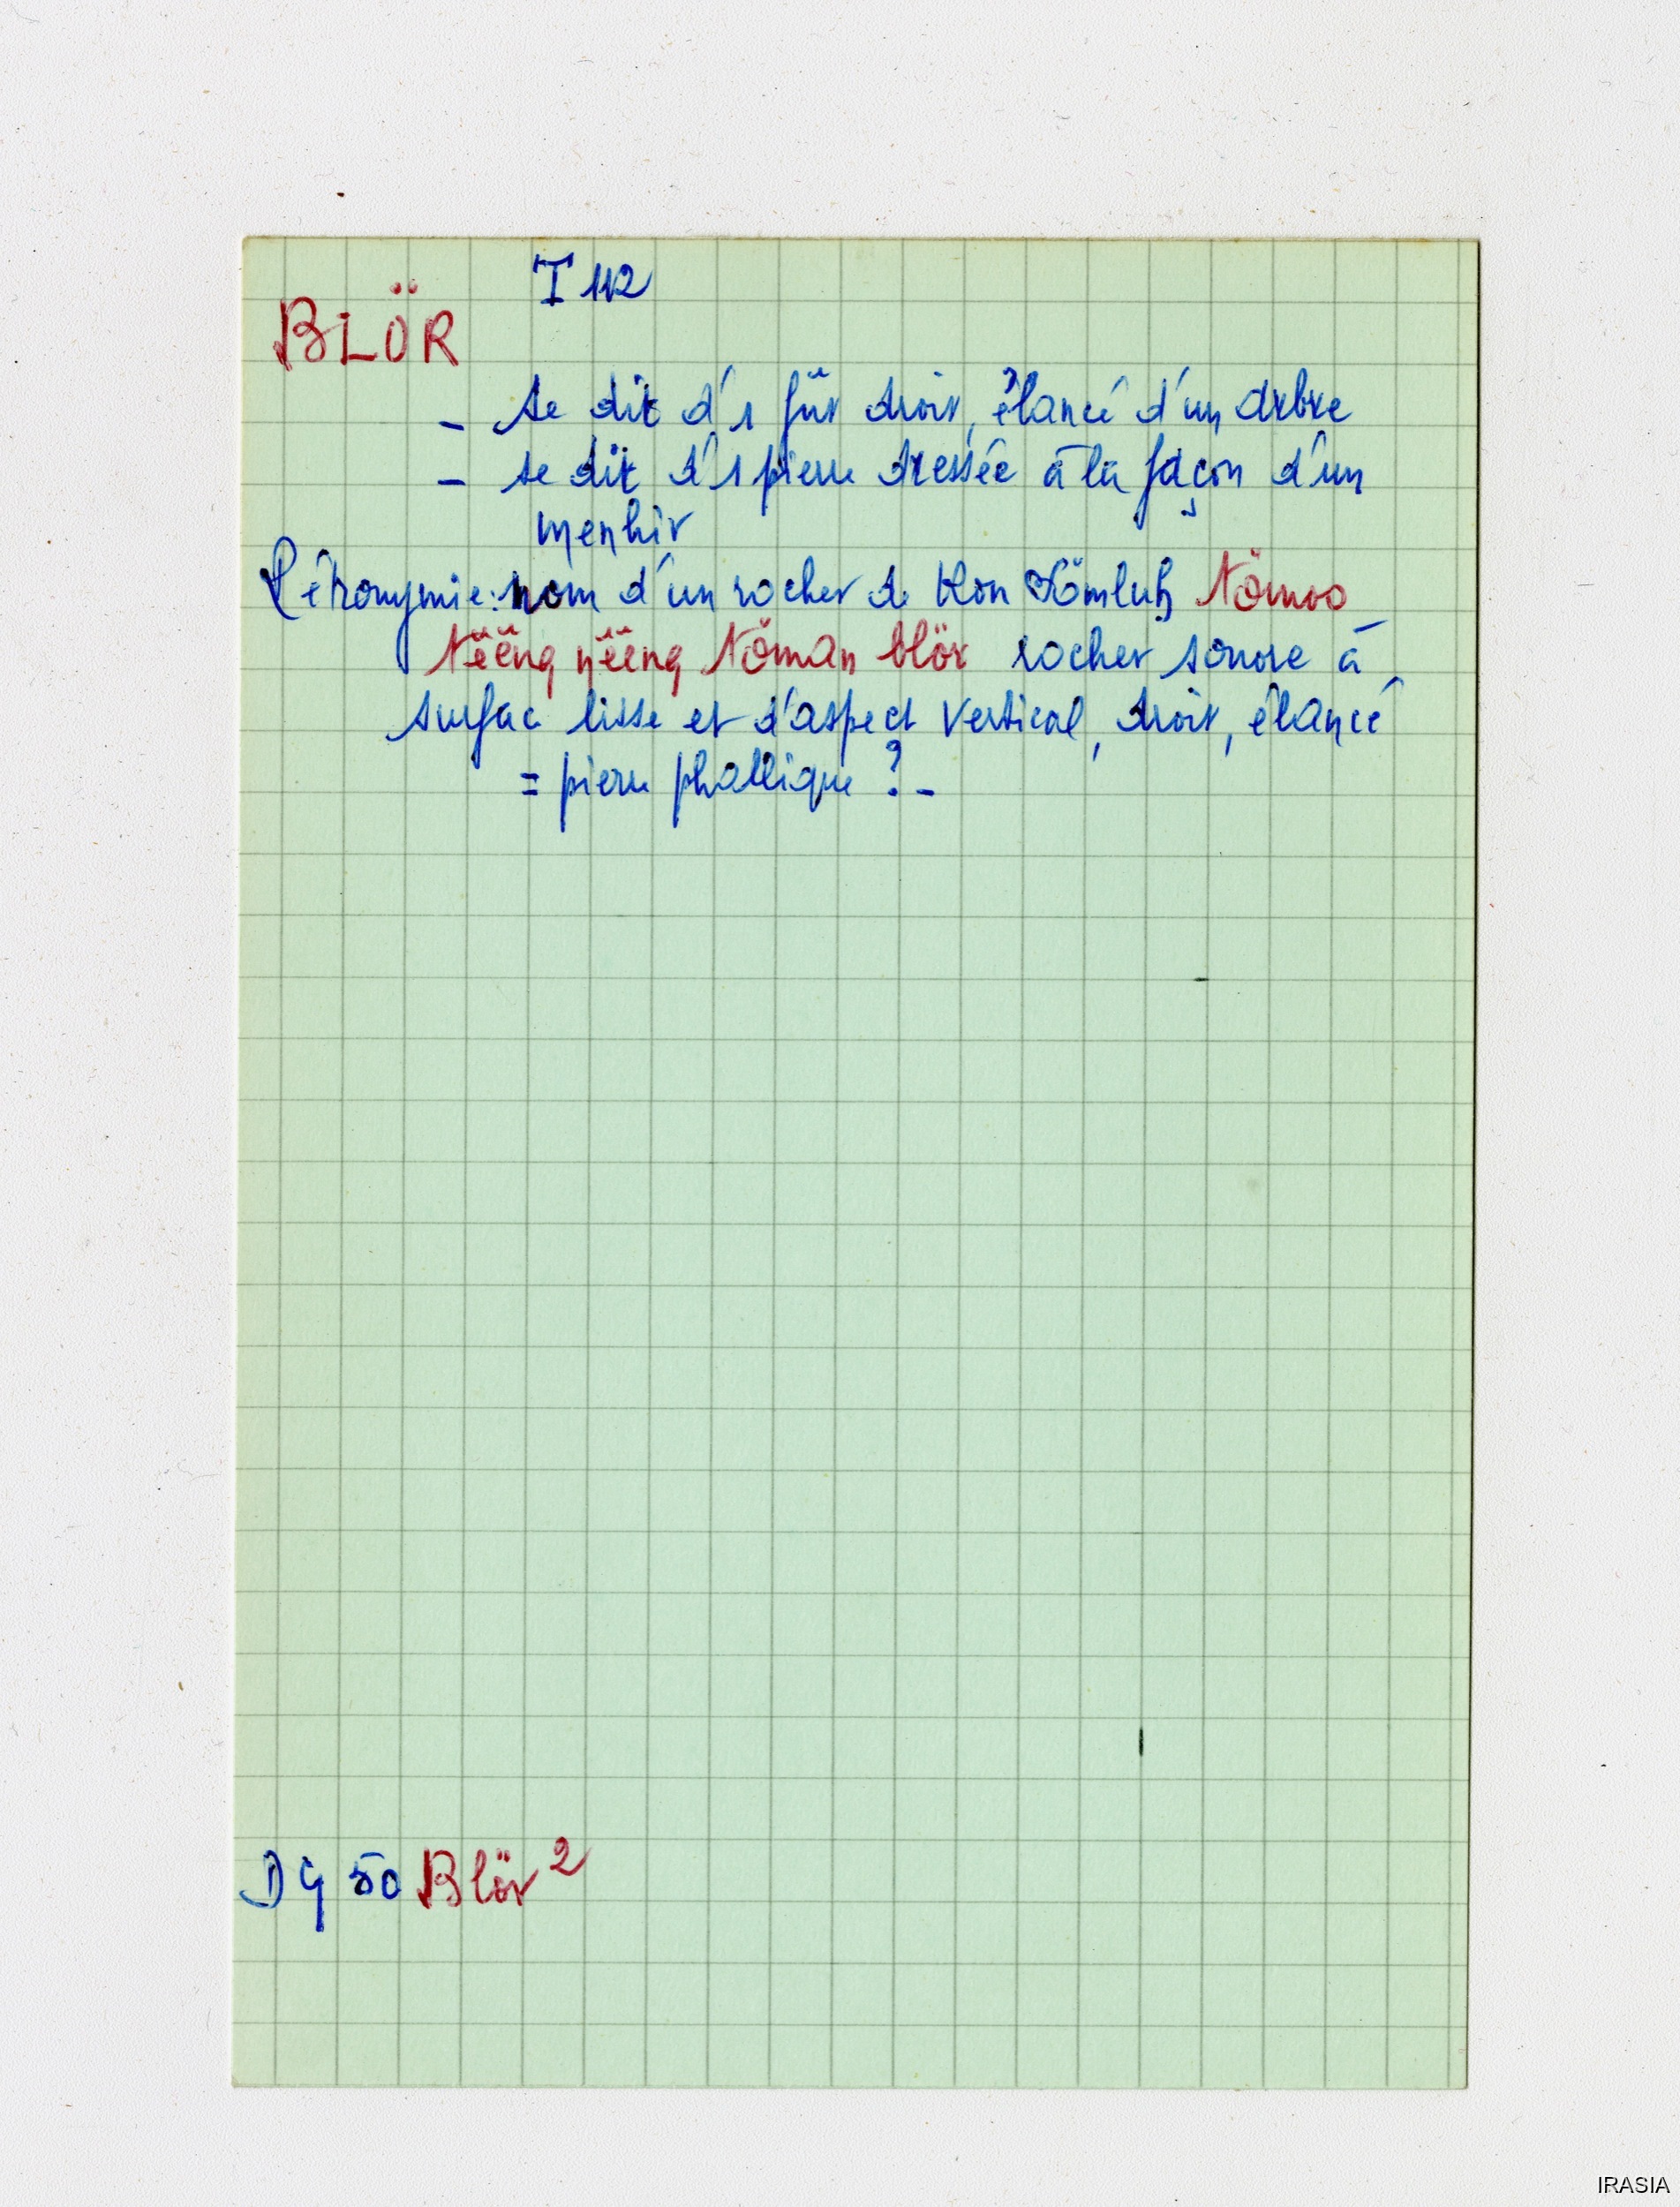 T 112
BLÖR
- se dit d'1 fût droit, élancé d'un arbre
- se dit d'1 pierre dressée à la façon d'un
menhir
Pétronymie: nom d'un rocher de Kon Kömluh Tömoo
tëëng nëëng töman blör rocher sonore à
surface lisse et d'aspect vertical, droit, élancé
= pierre phallique ? -
DG 50 Blör 2
IRASIA